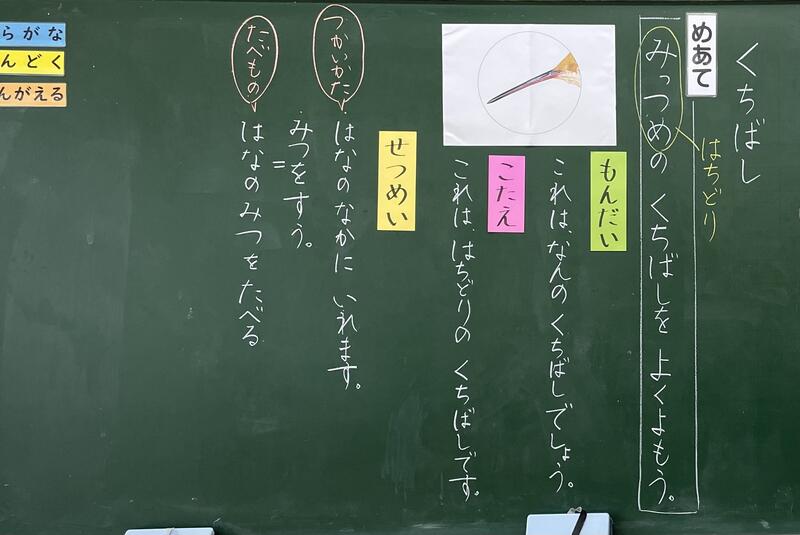 くちばし
めあて
みっつめの くちばしを よくよもう。
はちどり
もんだい
これは、なんの くちばしでしょう。
こたえ
これは、はちどりの くちばしです。
せつめい
つかいかた
はなの なかに いれます。
みつをすう。
=
たべもの
はなの みつを たべる
らがな
んどく
んがえる